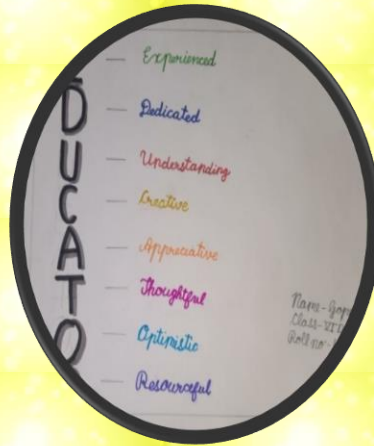 DUCATO
— Experienced
— Dedicated
— Understanding
— Creative
— Appreciative
— Thoughtful
— Optimistic
— Resourceful
Name-
Class-
Roll no-